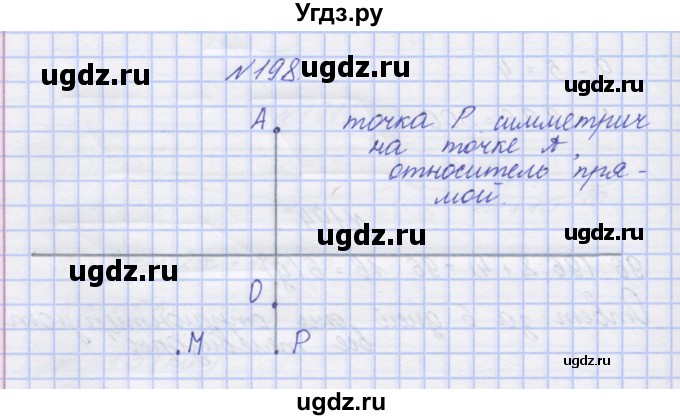 Угдз.ру
№198.
ugdz.ru
ugdz.ru
ugdz.ru
A
точка P симметрич
на точке A,
относитель пря-
мой.
ugdz.ru
ugdz.ru
ugdz.ru
O
M
P
ugdz.ru
ugdz.ru